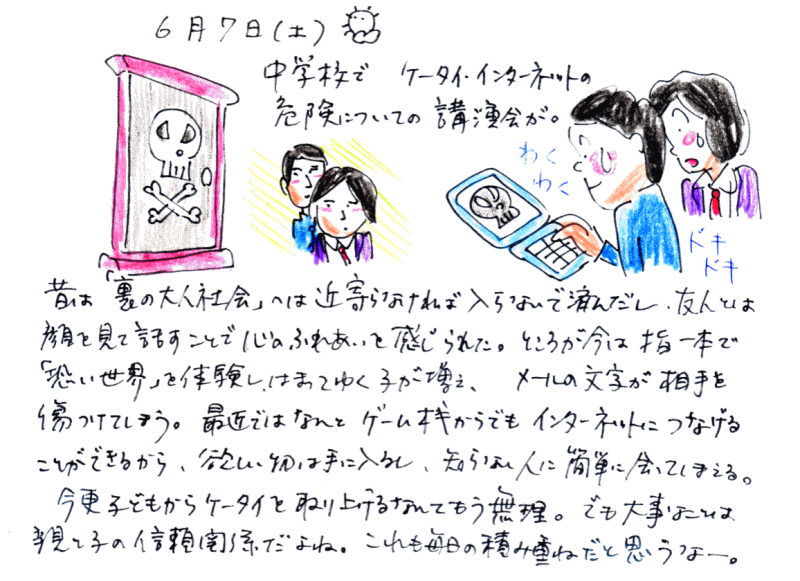 6月7日(土)
中学校で ケータイ・インターネットの
危険についての講演会が。
わく
わく
ドキ
ドキ
昔は「裏の大人社会」へは近寄らなければ入らないで済んだし、友人とは
顔を見て話すことで心のふれあいを感じられた。ところが今は指一本で
「恐い世界」を体験し、はまってゆく子が増え、 メールの文字が相手を
傷つけてしまう。最近ではなんとゲーム機からでもインターネットにつなげる
ことができるから、欲しい物は手に入るし、知らない人に簡単に会ってしまえる。
今更子どもからケータイを取り上げるなんてもう無理。でも大事なことは
親と子の信頼関係だよね。これも毎日の積み重ねだと思うなー。